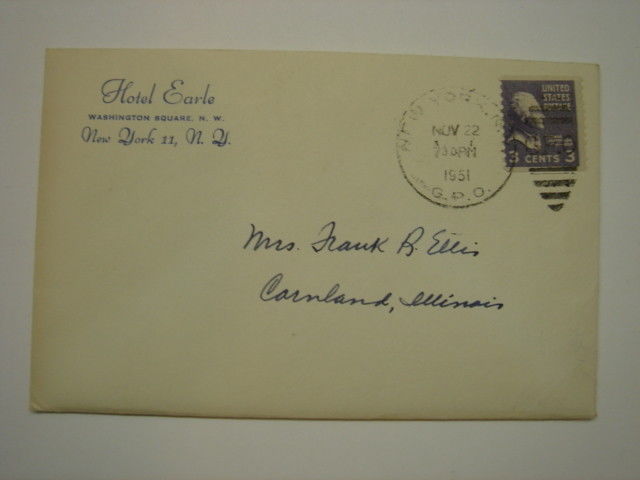 Hotel Earle
WASHINGTON SQUARE, N. W.
New York 11, N. Y.
NEW YORK, N.
NOV 22
PM
1951
G.P.O.
UNITED
STATES
POSTAGE
3 CENTS 3
Mrs. Frank B. Ettis
Cornland, Illinois